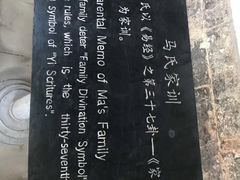 马氏家训
氏以《易经》之第三十七卦——《家
为家训。
arental Memo of Ma's Family
amily deter "Family Divination Symbol"
rules, which is the thirty-sevent
symbol of "Yi Scritures".